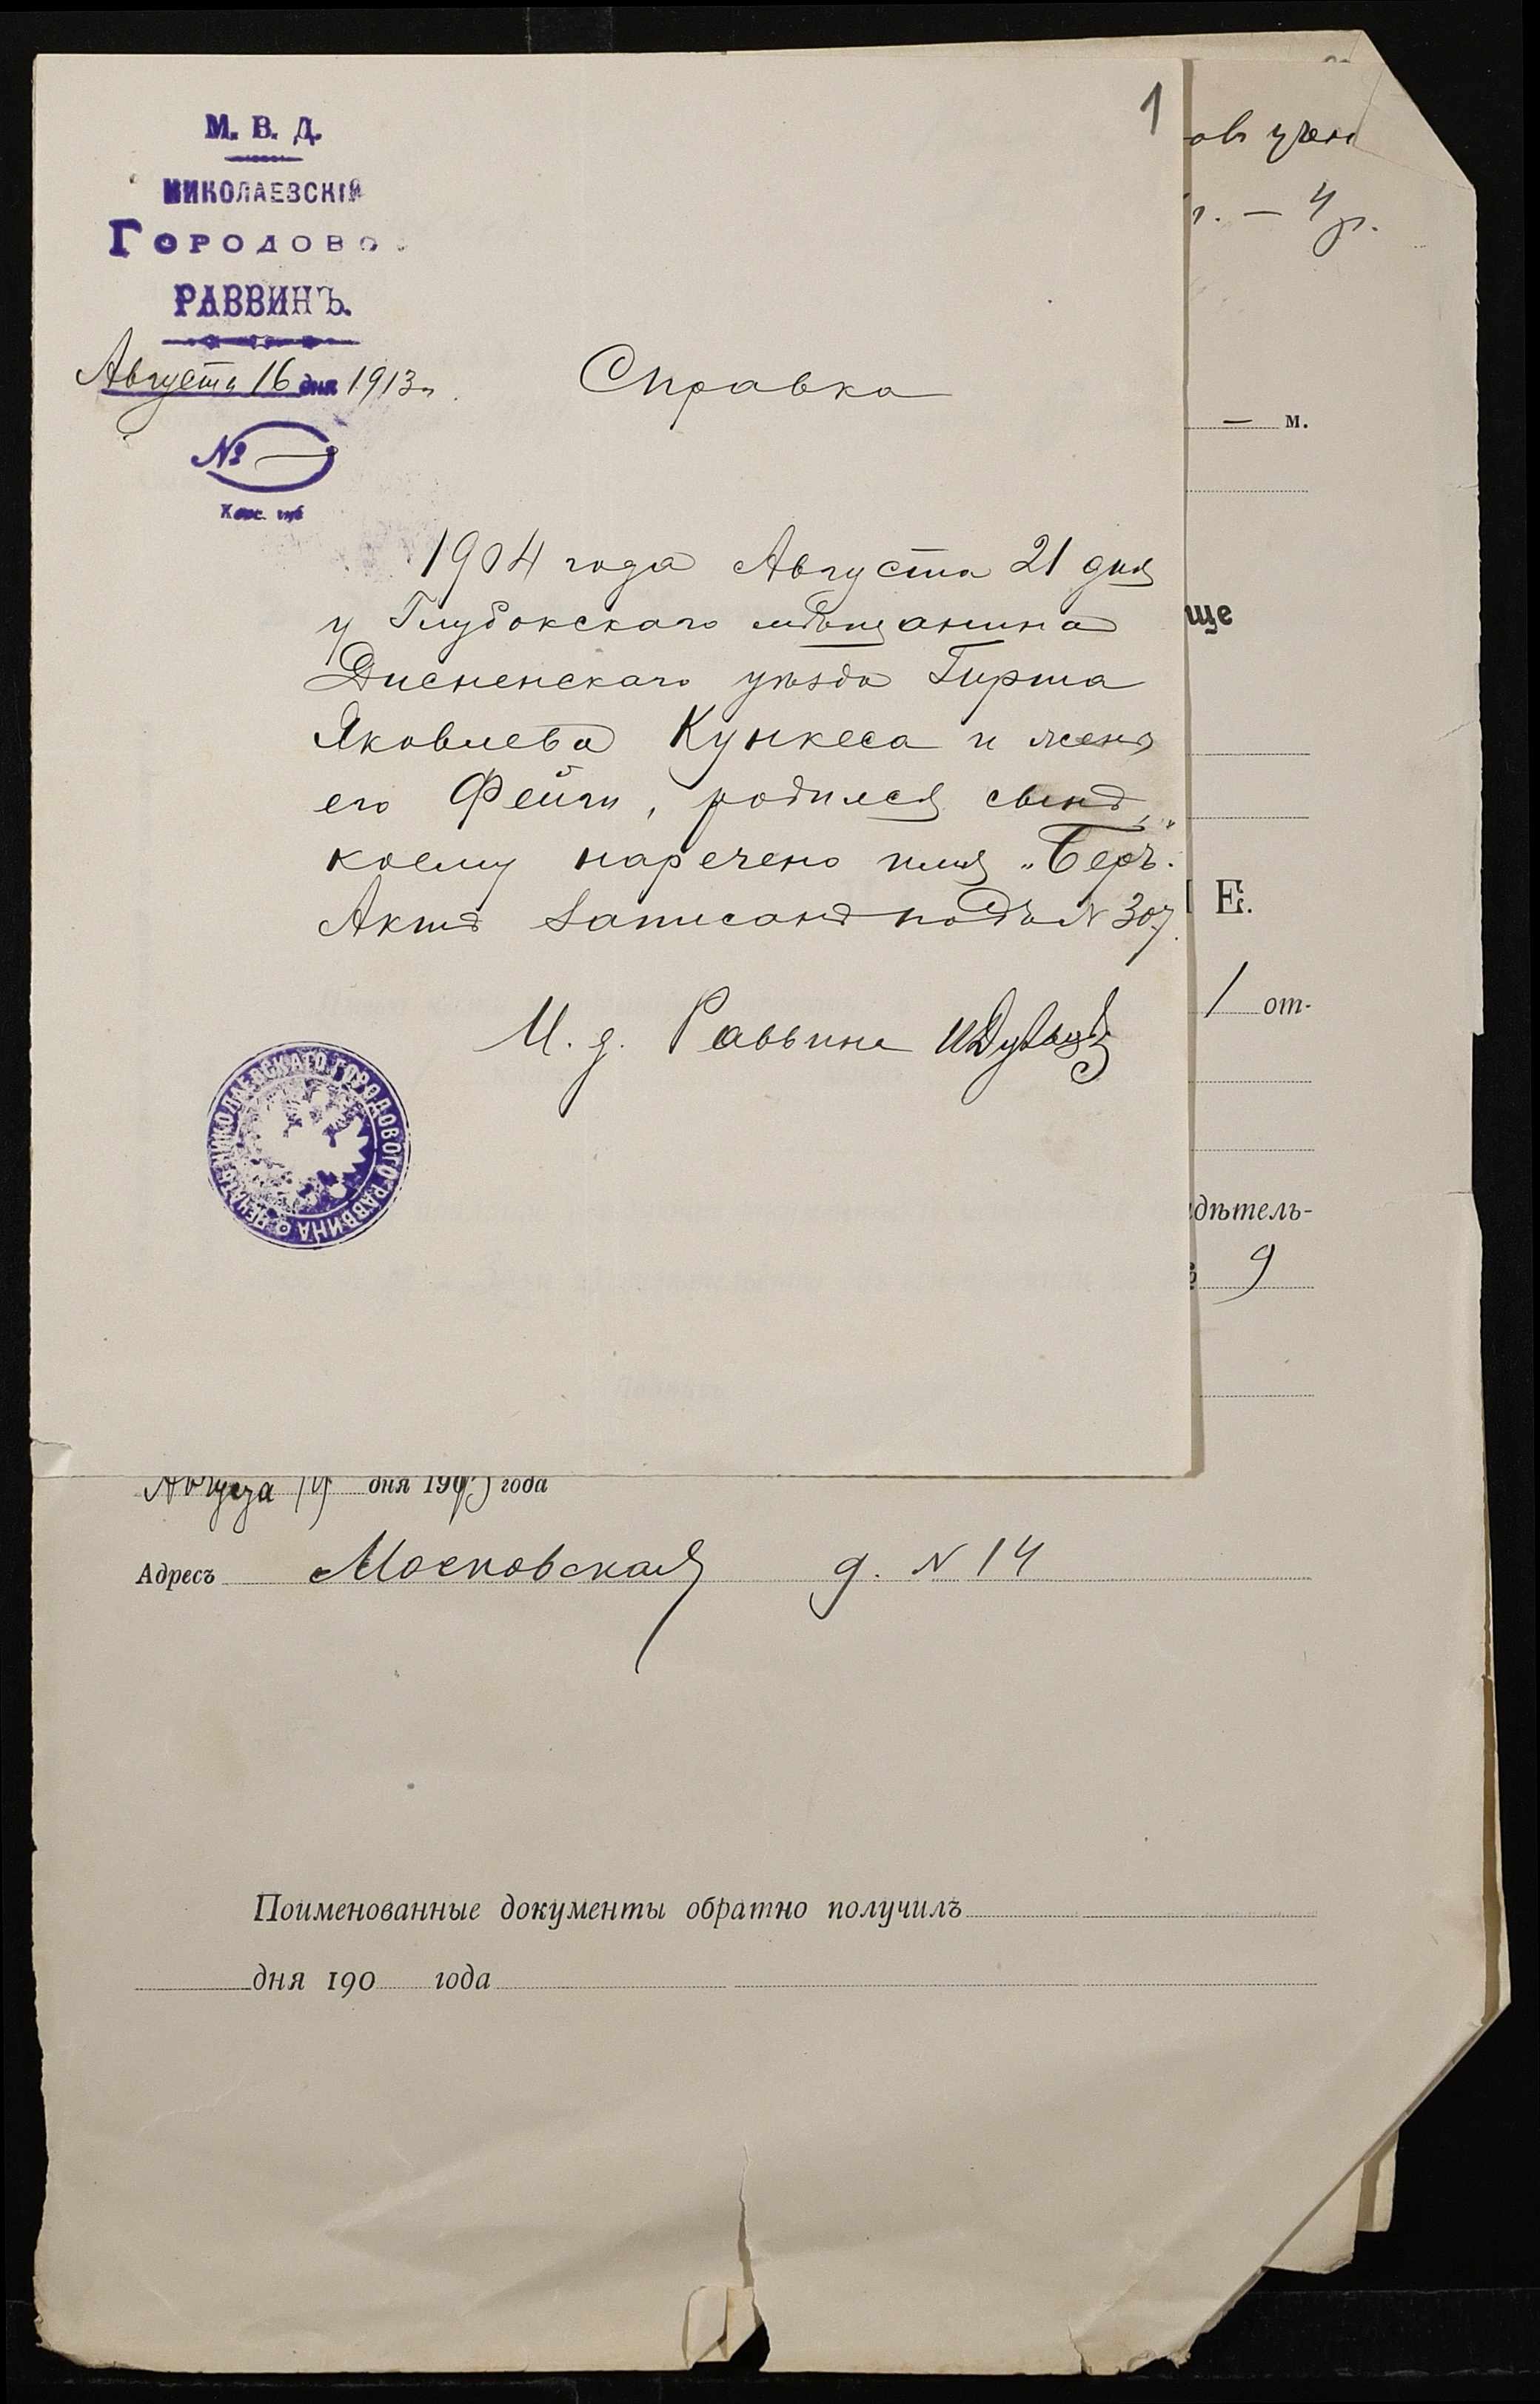 1
М. В. Д.
НИКОЛАЕВСКІЙ
ГОРОДОВО
РАВВИНЪ.
Августа 16 дня 1913 г.
№ —
Справка
1904 года Августа 21 дня
у Глубокскаго мѣщанина
Дисненскаго уѣзда Гирша
Яковлева Кункеса и жены
его Фейги, родился сынъ,
коему наречено имя „Беръ“.
Актъ записанъ подъ № 307.
И. д. Раввина
ПЕЧАТЬ НИКОЛАЕВСКАГО ГОРОДОВОГО РАВВИНА
— 4 р.
— м.
ще
Е.
1 от-
дѣтель-
9
Августа дня 1913 года
Адресъ Московская д. № 14
Поименованные документы обратно получилъ
дня 190 года